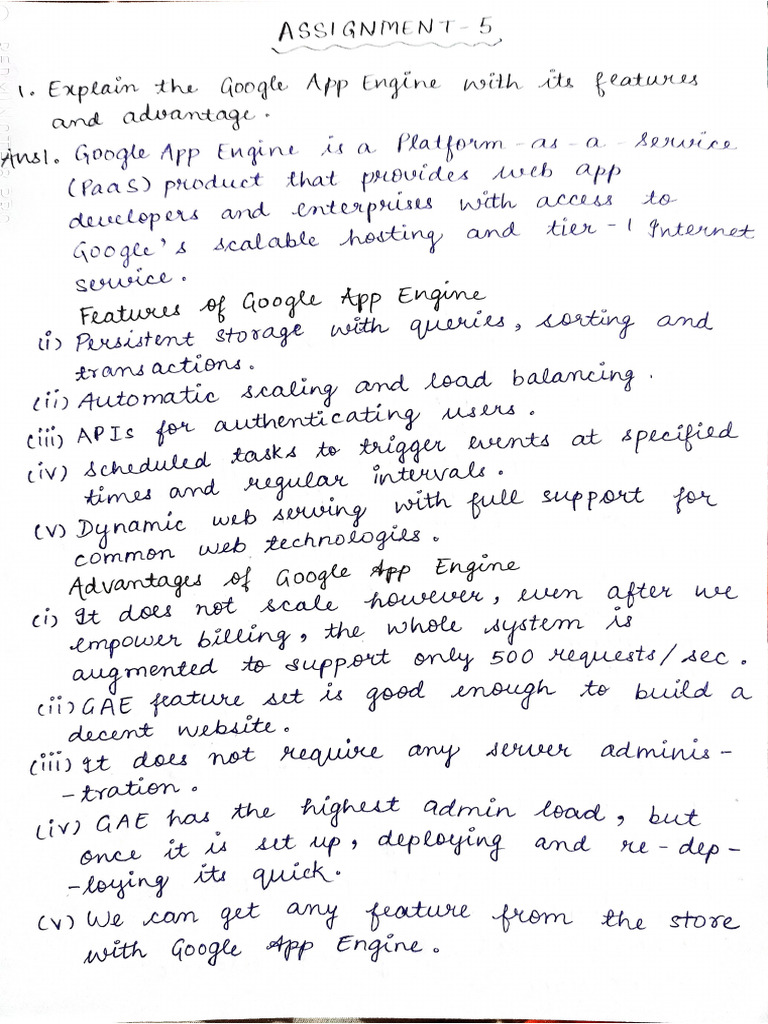 ASSIGNMENT - 5
1. Explain the Google App Engine with its features
and advantage.
Ans1. Google App Engine is a Platform-as-a-Service
(PaaS) product that provides web app
developers and enterprises with access to
Google's scalable hosting and tier-1 Internet
service.
Features of Google App Engine
(i) Persistent storage with queries, sorting and
transactions.
(ii) Automatic scaling and load balancing.
(iii) APIs for authenticating users.
(iv) Scheduled tasks to trigger events at specified
times and regular intervals.
(v) Dynamic web serving with full support for
common web technologies.
Advantages of Google App Engine
(i) It does not scale however, even after we
empower billing, the whole system is
augmented to support only 500 requests/sec.
(ii) GAE feature set is good enough to build a
decent website.
(iii) It does not require any server adminis-
-tration.
(iv) GAE has the highest admin load, but
once it is set up, deploying and re-dep-
-loying its quick.
(v) We can get any feature from the store
with Google App Engine.